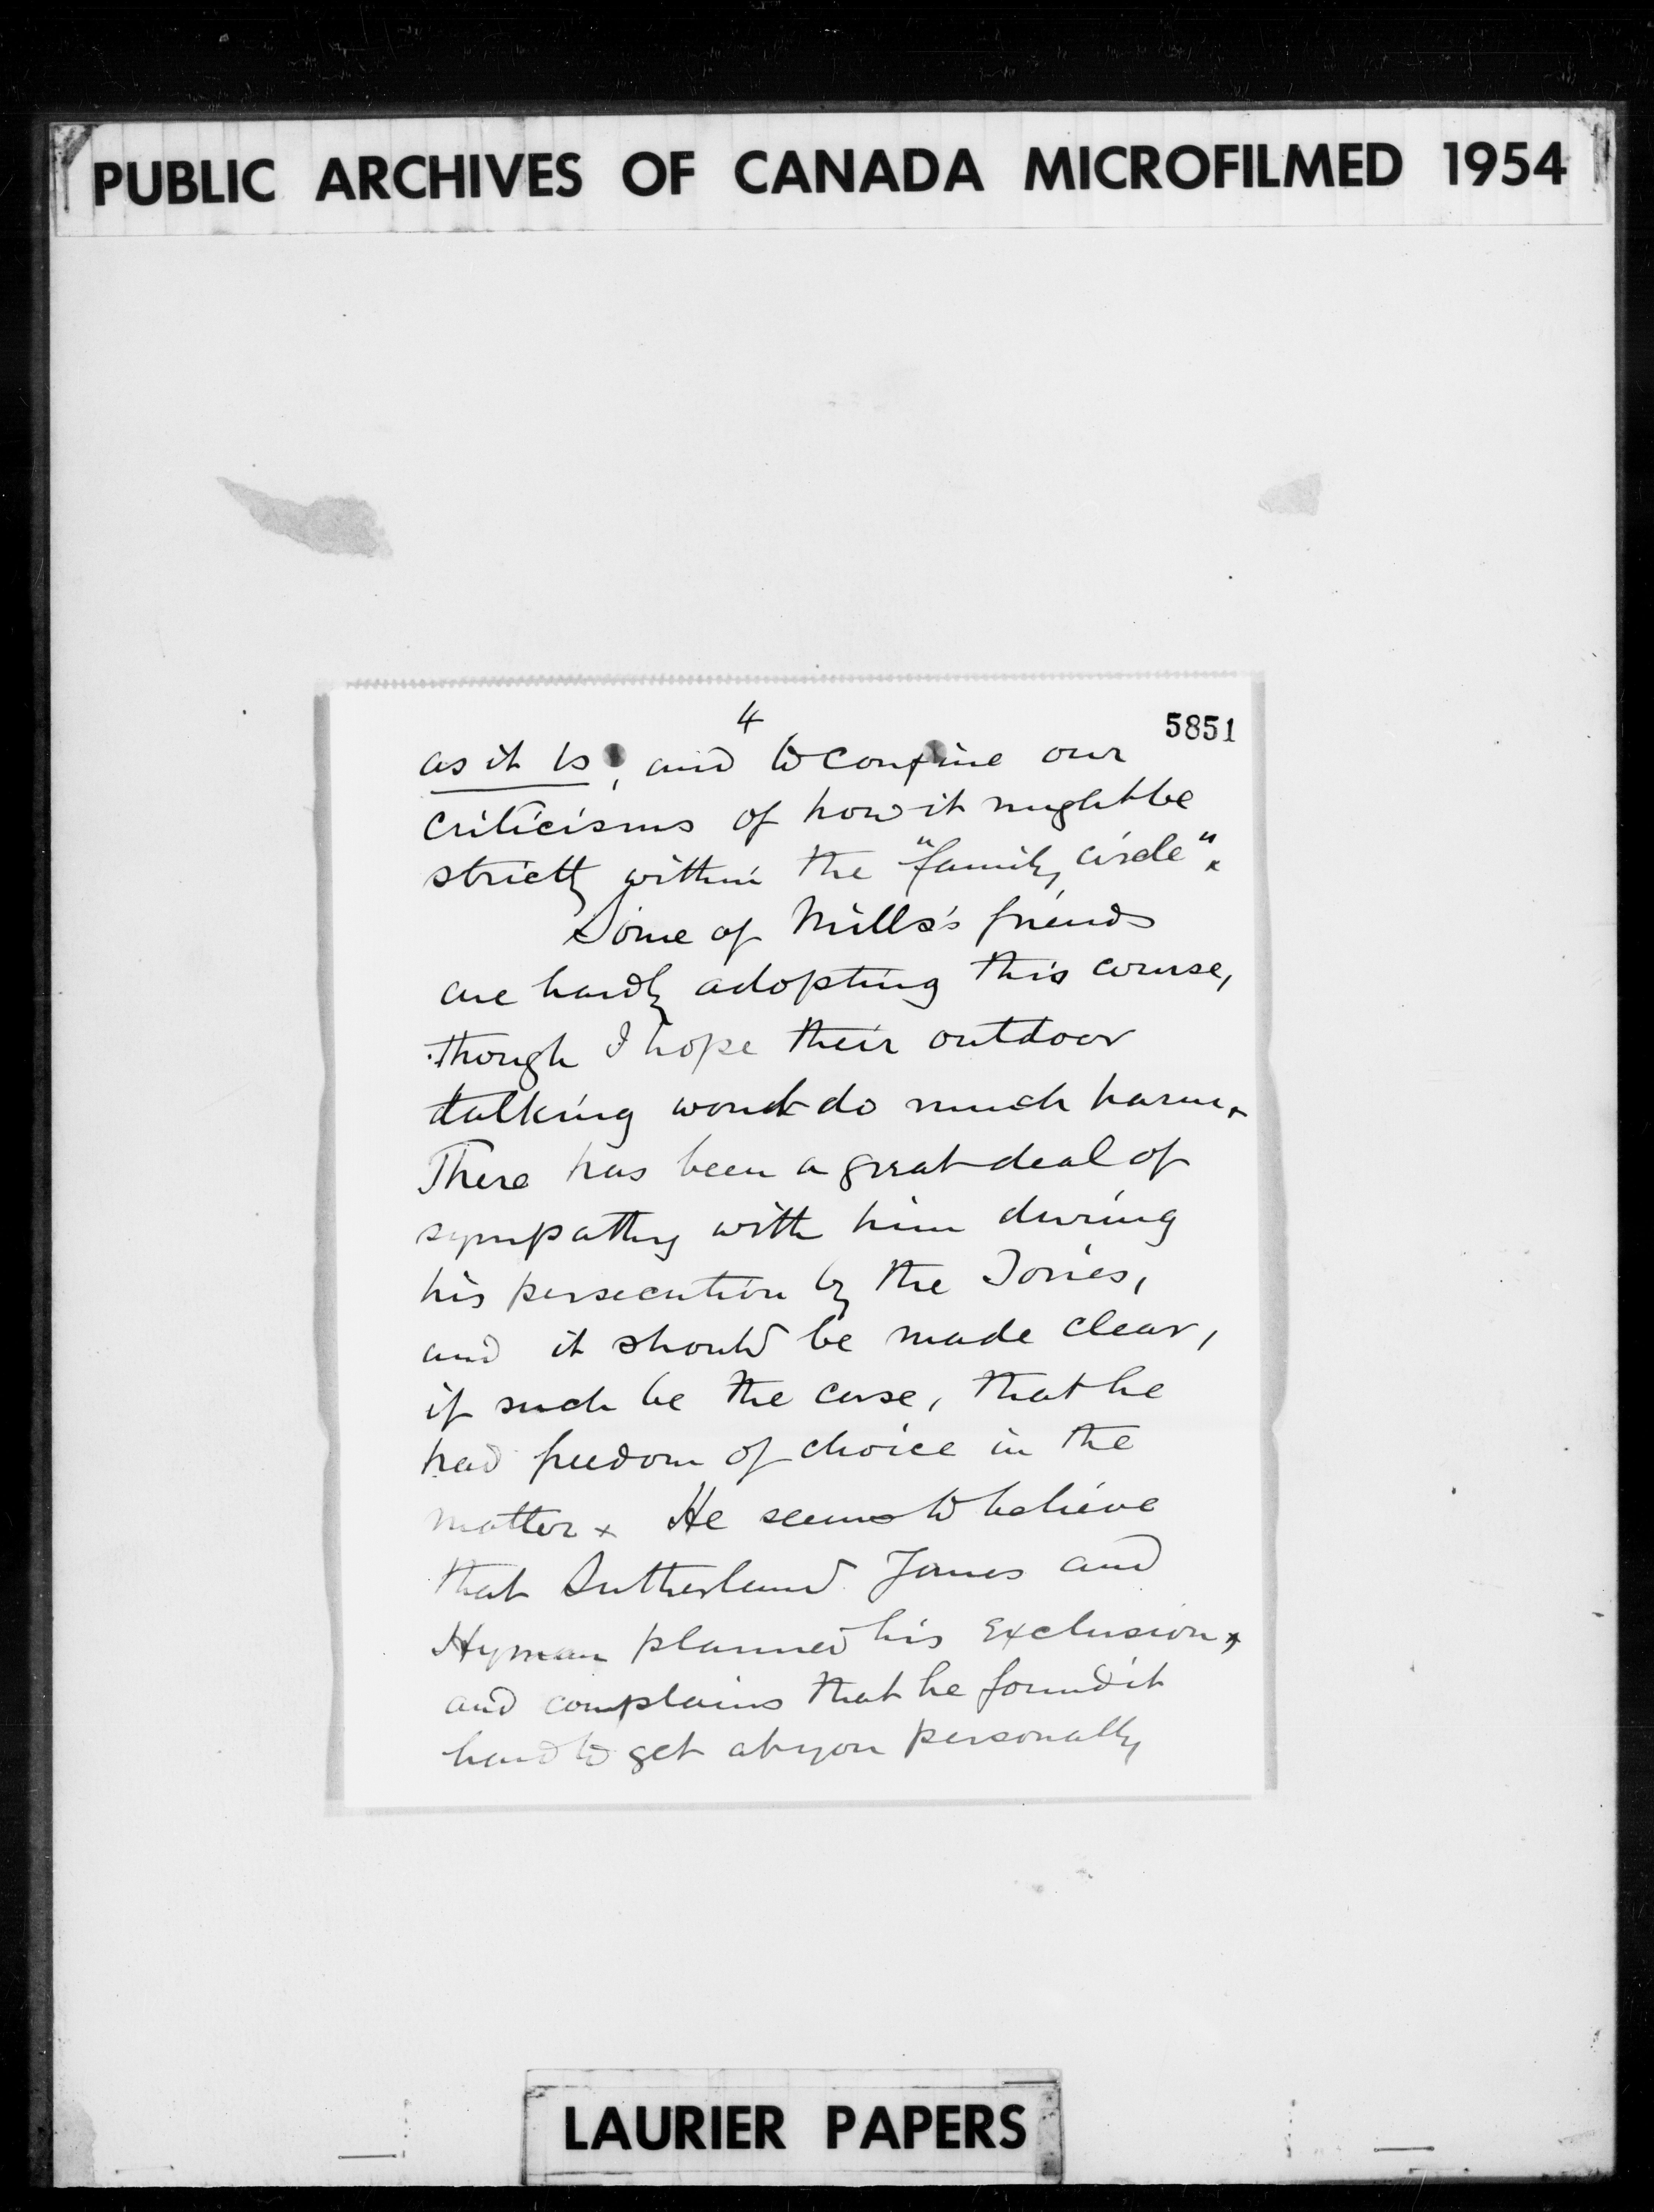 PUBLIC ARCHIVES OF CANADA MICROFILMED 1954
4
5851
as it is, and to confine our
criticisms of how it might be
strictly within the "family circle".
Some of Mills's friends
are hardly adopting this course,
though I hope their outdoor
talking wont do much harm.
There has been a great deal of
sympathy with him during
his persecution by the Tories,
and it should be made clear,
if such be the case, that he
had freedom of choice in the
matter. He seems to believe
that Sutherland James and
Hyman planned his exclusion,
and complains that he found it
hard to get at you personally
LAURIER PAPERS